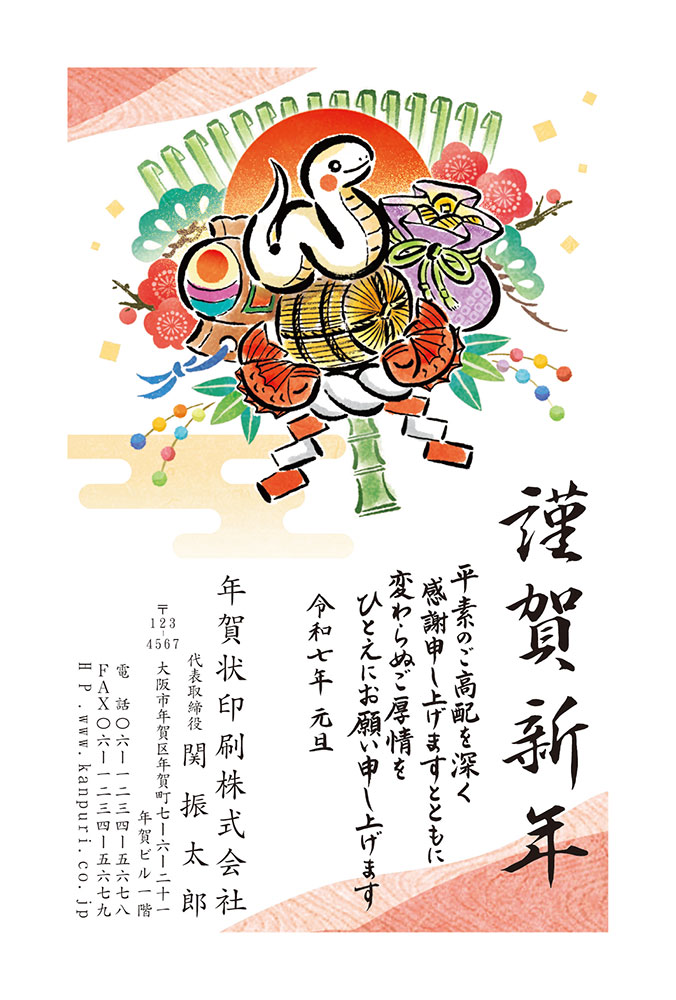 謹賀新年
平素のご高配を深く
感謝申し上げますとともに
変わらぬご厚情を
ひとえにお願い申し上げます
令和七年 元旦
年賀状印刷株式会社
代表取締役 関振太郎
〒123-4567 大阪市年賀区年賀町七ー六ー二十一
年賀ビル一階
電 話〇六ー一二三四ー五六七八
FAX〇六ー一二三四ー五六七九
HP.www.kanpuri.co.jp